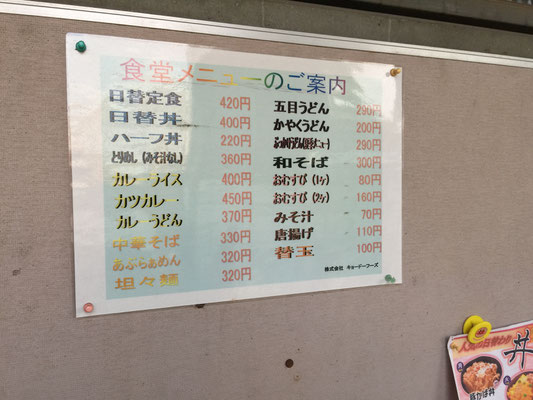 食堂メニューのご案内
日替定食 420円
日替丼 400円
ハーフ丼 220円
とりめし（みそ汁なし） 360円
カレーライス 400円
カツカレー 450円
カレーうどん 370円
中華そば 330円
あぶらぁめん 320円
坦々麺 320円
五目うどん 290円
かやくうどん 200円
290円
和そば 300円
おむすび（1ケ） 80円
おむすび（2ケ） 160円
みそ汁 70円
唐揚げ 110円
替玉 100円
株式会社 キョードーフーズ
丼